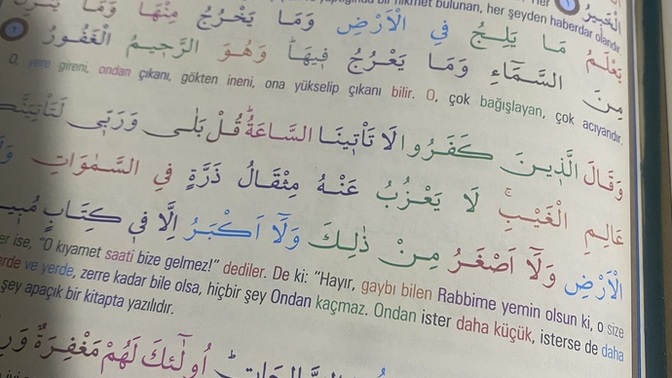 hikmet bulunan, her şeyden haberdar olandır.
الْخَبِيرُ
يَعْلَمُ مَا يَلِجُ فِي الْاَرْضِ وَمَا يَخْرُجُ مِنْهَا وَمَا
مِنَ السَّمَٓاءِ وَمَا يَعْرُجُ فِيهَاۜ وَهُوَ الرَّحِيمُ الْغَفُورُ
O, yere gireni, ondan çıkanı, gökten ineni, ona yükselip çıkanı bilir. O, çok bağışlayan, çok acıyandır.
وَقَالَ الَّذِينَ كَفَرُوا لَا تَأْتِينَا السَّاعَةُۜ قُلْ بَلٰى وَرَبِّي
عَالِمِ الْغَيْبِۚ لَا يَعْزُبُ عَنْهُ مِثْقَالُ ذَرَّةٍ فِي السَّمٰوَاتِ
الْاَرْضِ وَلَٓا اَصْغَرُ مِنْ ذٰلِكَ وَلَٓا اَكْبَرُ اِلَّا فِي كِتَابٍ
ise, "O kıyamet saati bize gelmez!" dediler. De ki: "Hayır, gaybı bilen Rabbime yemin olsun ki, o size
ve yerde, zerre kadar bile olsa, hiçbir şey Ondan kaçmaz. Ondan ister daha küçük, isterse de daha
şey apaçık bir kitapta yazılıdır.
اُو۬لٰٓئِكَ لَهُمْ مَغْفِرَةٌ